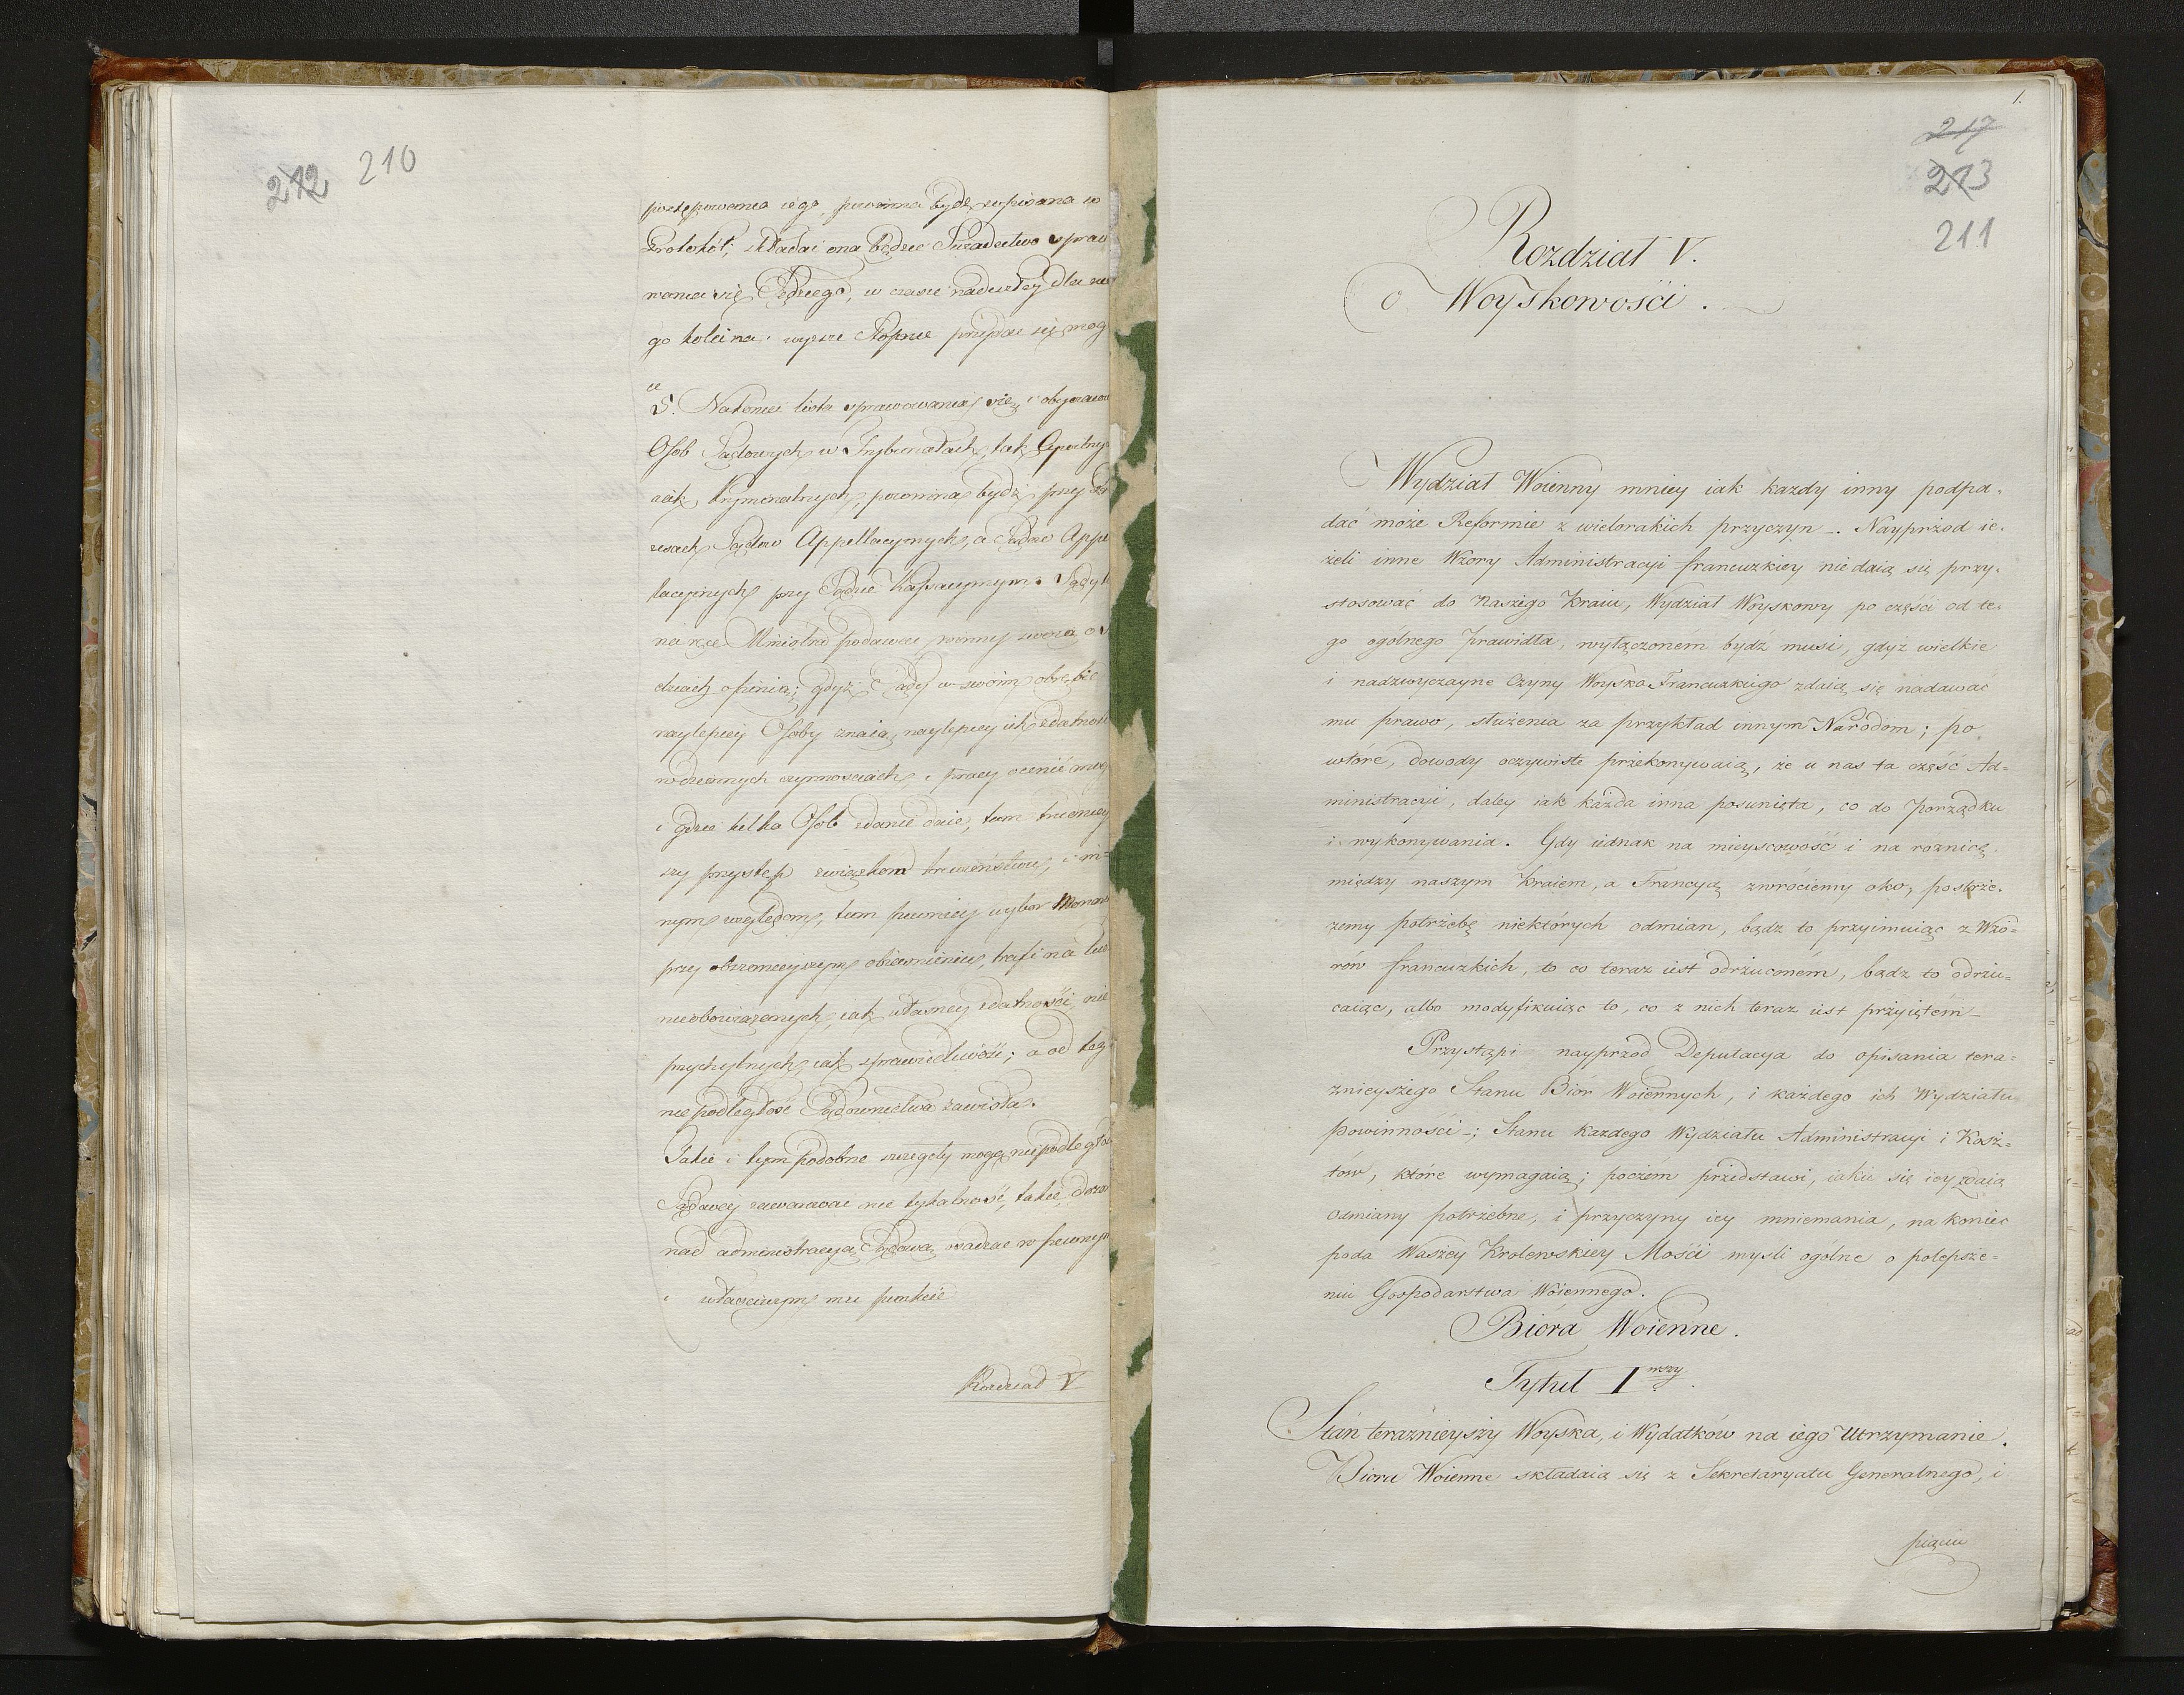 212 210
postępowania iego, powinna bydź wpisana w
Protokół; składać ona będzie Świadectwo spraw
wania się Sędziego, w czasie nadeszłey dla nie
go koleina wyższe Stopnie przypaść się mog
5. Nakoniec lista sprawowania się i obyczaiow
Osob Sądowych w Trybunałach, tak Cywilnyc
iak kryminalnych, powinna bydź przy
zesach Sądow Appellacyinych, a Sądow Appe
lacyinych przy Sądzie Kassacyinym. Sądy t
na ręce Ministra podawać winny swoią o S
dziach opinią; gdyż Sądy w swoim obrębie
naylepiey Osoby znaią, naylepiey ich zdatność
w dziennych czynnościach i pracy ocenić mogą
i gdzie kilka Osob zdanie daie, tam trudniey
szy przystęp związkom krewieństwa, i in=
nym względom, tam pewniey wybor Monar
przy obszernieyszym obiaśnieniu, trafi na lu
nieobowiązanych, iak własney zdatności, nie
przychylnych, iak sprawiedliwości; a od teg
niepodległość Sądownictwa zawisła.
Takie i tym podobne szczegoły mogą niepodległo
Sądowey zawarować nietykalność, takie dozo
nad administracyą Sądową osadzać w pewnym
i właściwym mu punkcie
Rozdział V
1.
217
213
211
Rozdział V.
O Woyskowości.
Wydział Woienny mniey iak każdy inny podpa-
dać może Reformie z wielorakich przyczyn_. Nayprzod ie-
żeli inne Wzory Administracyi francuzkiey nie daią się przy-
stosować do Naszego Kraiu, Wydział Woyskowy po części od te-
go ogólnego prawidła, wyłączonem bydź musi, gdyż wielkie
i nadzwyczayne Czyny Woyska Francuzkiego zdaią się nadawać
mu prawo, służenia za przykład innym Narodom; po
wtóre, dowody oczywiste przekonywaią, że u nas ta część Ad=
ministracyi, daley iak każda inna posunięta, co do porządku
i wykonywania. Gdy iednak na mieyscowość i na roznicę
między naszym Kraiem, a Francyą zwrociemy oko, postrze-
żemy potrzebę niektórych odmian, bądz to przyimuiąc z Wzo=
rów francuzkich, to co teraz iest odrzuconém, bądz to odrzu=
caiąc, albo modyfikuiąc to, co z nich teraz iest przyiętém_
Przystąpi nayprzod Deputacya do opisania tera=
znieyszego Stanu Biór Woiennych, i każdego ich Wydziału
powinności_; Stanu każdego Wydziału Administracyi i Kosz=
tów, które wymagaią; poczém przedstawi, iakie się iey zdaią
odmiany potrzebne, i przyczyny iey mniemania, na koniec
poda Waszey Krolewskiey Mości mysli ogólne o polepsze=
niu Gospodarstwa Woiennego.
Bióra Woienne.
Tytuł I wszy.
Stan teraźnieyszy Woyska, i Wydatków na iego Utrzymanie.
Biora Woienne składaią się z Sekretaryatu Generalnego, i
pięciu